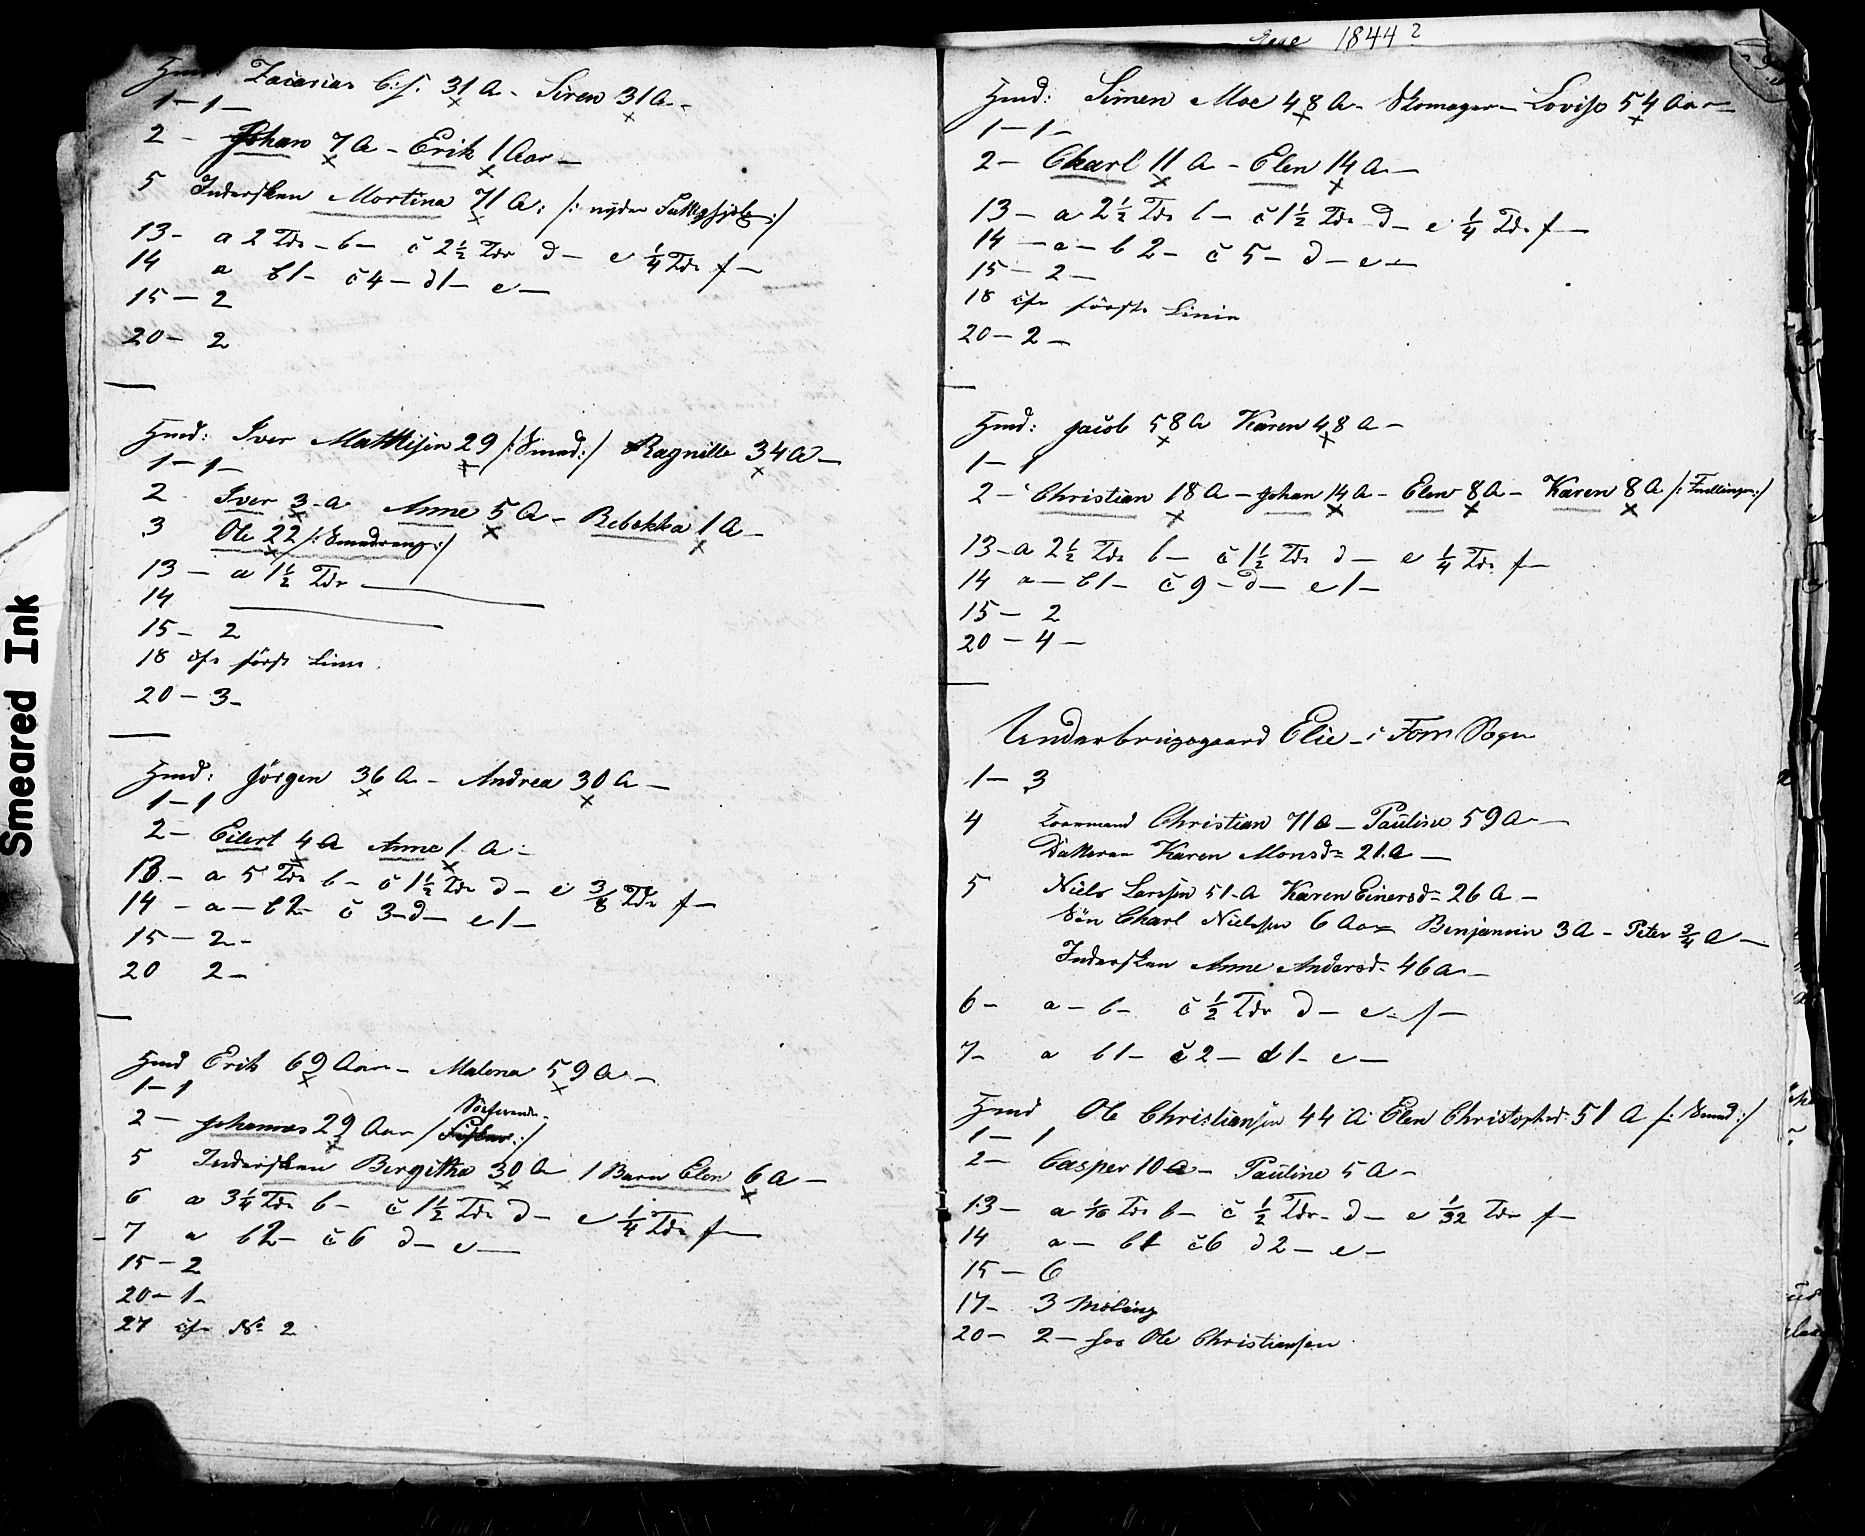 1844?
Smeared Ink
Hmd: Zacarias C:s. 31 A - Siren 31 A -
1 - 1 -
2 - Johan 7 A - Erik 1 Aar -
5 Indersken Mortina 71 A: /: nyder :/
13 - a 2 Tdr - b - c 2½ Tdr d - e ¼ Tdr f -
14 a b1 - c 4 - d1 - e -
15 - 2
20 - 2
Hmd: Iver Mathisen 29 /: Smed :/ Ragnille 34 A -
1 - 1 -
2 Iver 3 - A Anne 5 A - Rebekka 1 A -
3 Ole 22 /: Smedreng :/
13 - a 1½ Tdr
14
15 - 2
18 første Linie
20 - 3 -
Hmd: Jörgen 36 A - Andrea 30 A -
1 - 1
2 - Eilert 4 A Anne 1 A -
13 - a 5 Tdr b - c 1½ Tdr d - e 3/8 Tdr f -
14 - a - b2 - c 3 - d - e 1 -
15 - 2 -
20 2 -
Hmd Erik 69 Aar - Malena 59 A -
1 - 1
2 - Johannes 29 Aar / Söefarende :/
5 Indersken Bergitha 30 A 1 Barn Elen 6 A -
6 a 3¼ Tdr b - c 1½ Tdr d - e ¼ Tdr f -
7 a b2 - c 6 d - e -
15 - 2
20 - 1 -
27 No 2
Hmd: Simen Moe 48 A - Skomager - Lovise 54 Aar -
1 - 1 -
2 - Charl 11 A - Elen 14 A -
13 - a 2½ Tdr b - c 1½ Tdr d - e ¼ Tdr f -
14 - a - b 2 - c 5 - d - e -
15 - 2 -
18 første Linie
20 - 2 -
Hmd: Jacob 58 A Karen 48 A -
1 - 1
2 - Christian 18 A - Johan 14 A - Elen 8 A - Karen 8 A /: Tvellinger :/
13 - a 2½ Tdr b - c 1½ Tdr d - e ¼ Tdr f -
14 a - b1 - c 9 - d - e 1 -
15 - 2
20 - 4 -
Underbrugsgaard Elie - i Foss Sogn
1 - 3
4 Formand Christian 71 A - Pauline 59 A -
Datteren Karen Monsd: 21 A -
5 Niels Larssen 51 A Karen Einersd: 26 A -
Søn Charl Nielssen 6 Aar Benjamin 3 A - Peter ¾ A -
Indersken Anne Andersd: 46 A -
6 - a - b - c ½ Tdr d - e - f -
7 - a b1 - c 2 - d1 - e -
Hmd Ole Christiansen 44 A Elen Christophsd: 51 A /: Smed :/
1 - 1
2 - Casper 10 A - Pauline 5 A -
13 - a 1/16 Tdr b - c ½ Tdr - d - e 1/32 Tdr f -
14 a - b1 c 6 d 2 - e -
15 - 6
17 - 3 Moling
20 - 2 - hos Ole Christiansen